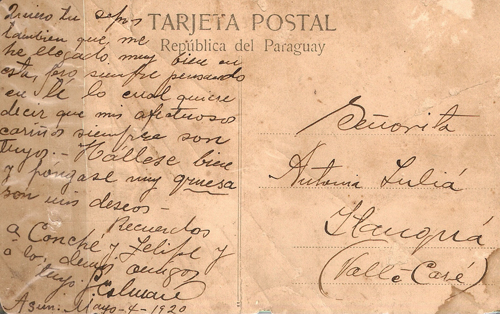 TARJETA POSTAL
República del Paraguay
Quiero tu sepas
tambien que me
he llegado muy bien en
esta, pero siempre pensando
en Ud lo cual quiere
decir que mis afectuosos
cariños siempre son
tuyo. Hállese bien
y póngase muy gruesa
son mis deseos -
Recuerdos
a Conche y Felipe y
a lo demas amigos
Tuyo
Asun: Mayo-4-1920
Señorita
Antonia Juliá
Itauguá
(Valle Caré)